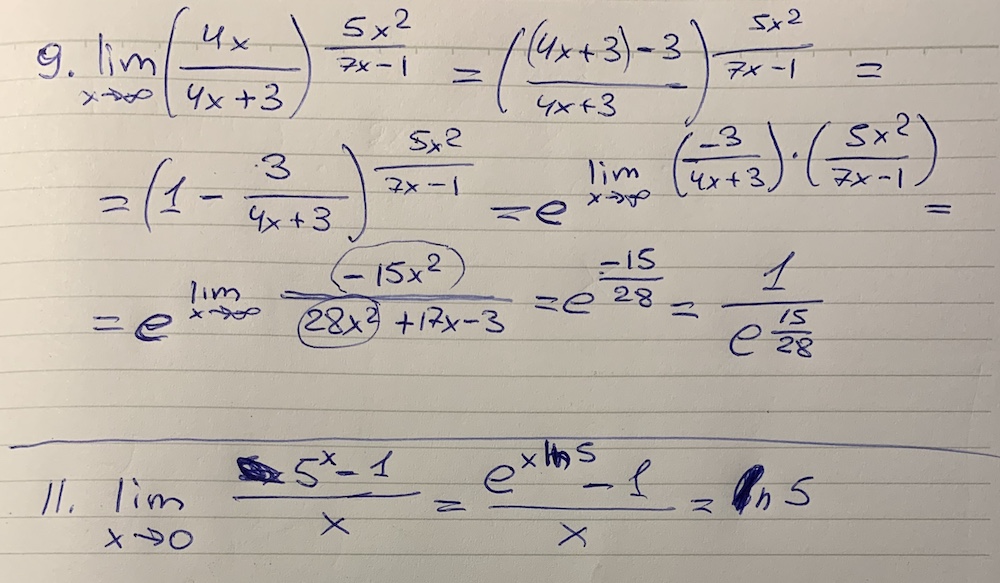 9. lim x→∞ (4x / 4x+3)^(5x² / 7x−1) = ((4x+3)−3 / 4x+3)^(5x² / 7x−1) =
= (1 − 3 / 4x+3)^(5x² / 7x−1) = e^(lim x→∞ (−3 / 4x+3)·(5x² / 7x−1)) =
= e^(lim x→∞ −15x² / 28x² +17x−3) = e^(−15 / 28) = 1 / e^(15 / 28)
11. lim x→0 5^x−1 / x = e^(x ln 5) −1 / x = ln 5